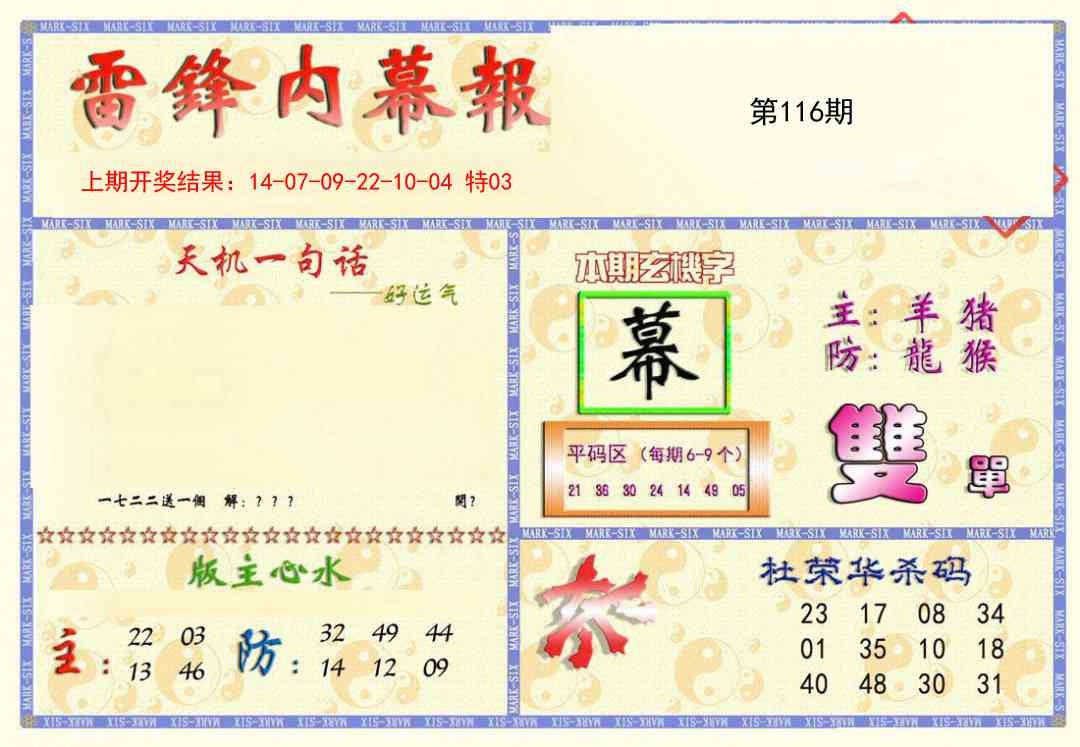 雷鋒内幕報
第116期
上期开奖结果：14-07-09-22-10-04 特03
天机一句话
——好运气
一七二二送一個 解：？？？ 開？
本期玄機字
幕
主：羊 猪
防：龍 猴
雙 單
平码区（每期6-9个）
21 36 30 24 14 49 05
版主心水
主： 22 03 13 46
防： 32 49 44 14 12 09
杜荣华杀码
杀
23 17 08 34
01 35 10 18
40 48 30 31
MARK-SIX